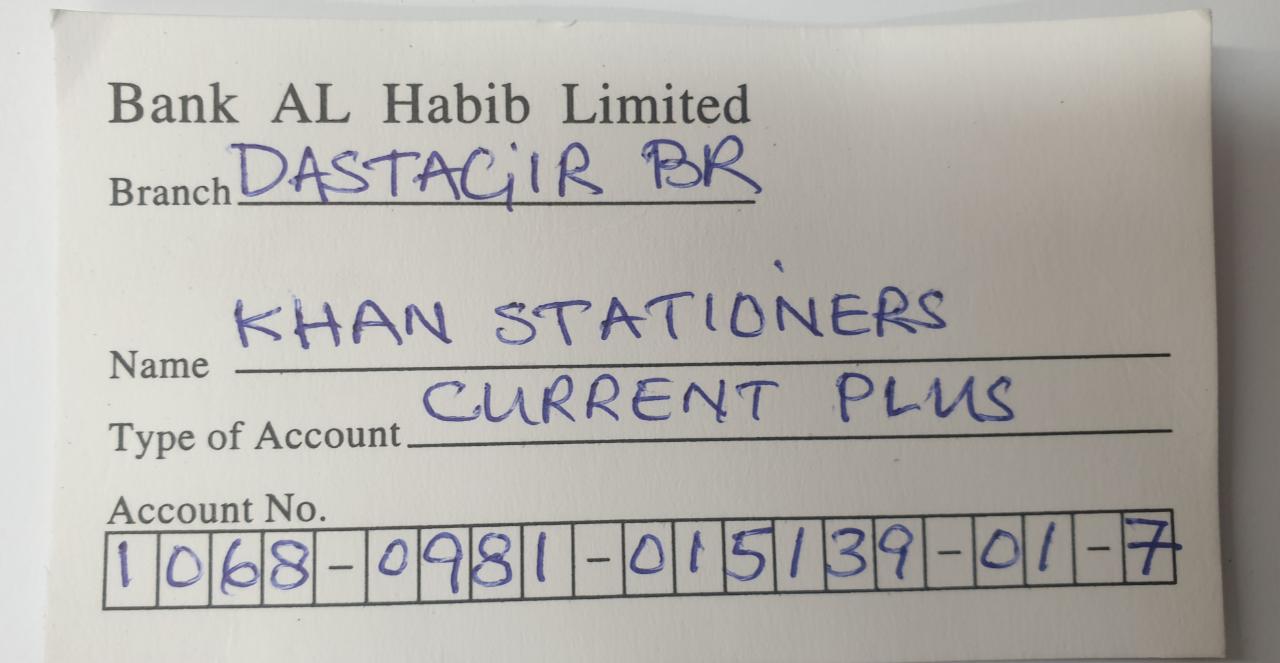 Bank AL Habib Limited
Branch DASTAGIR BR
Name KHAN STATIONERS
Type of Account CURRENT PLUS
Account No.
1068-0981-015139-01-7